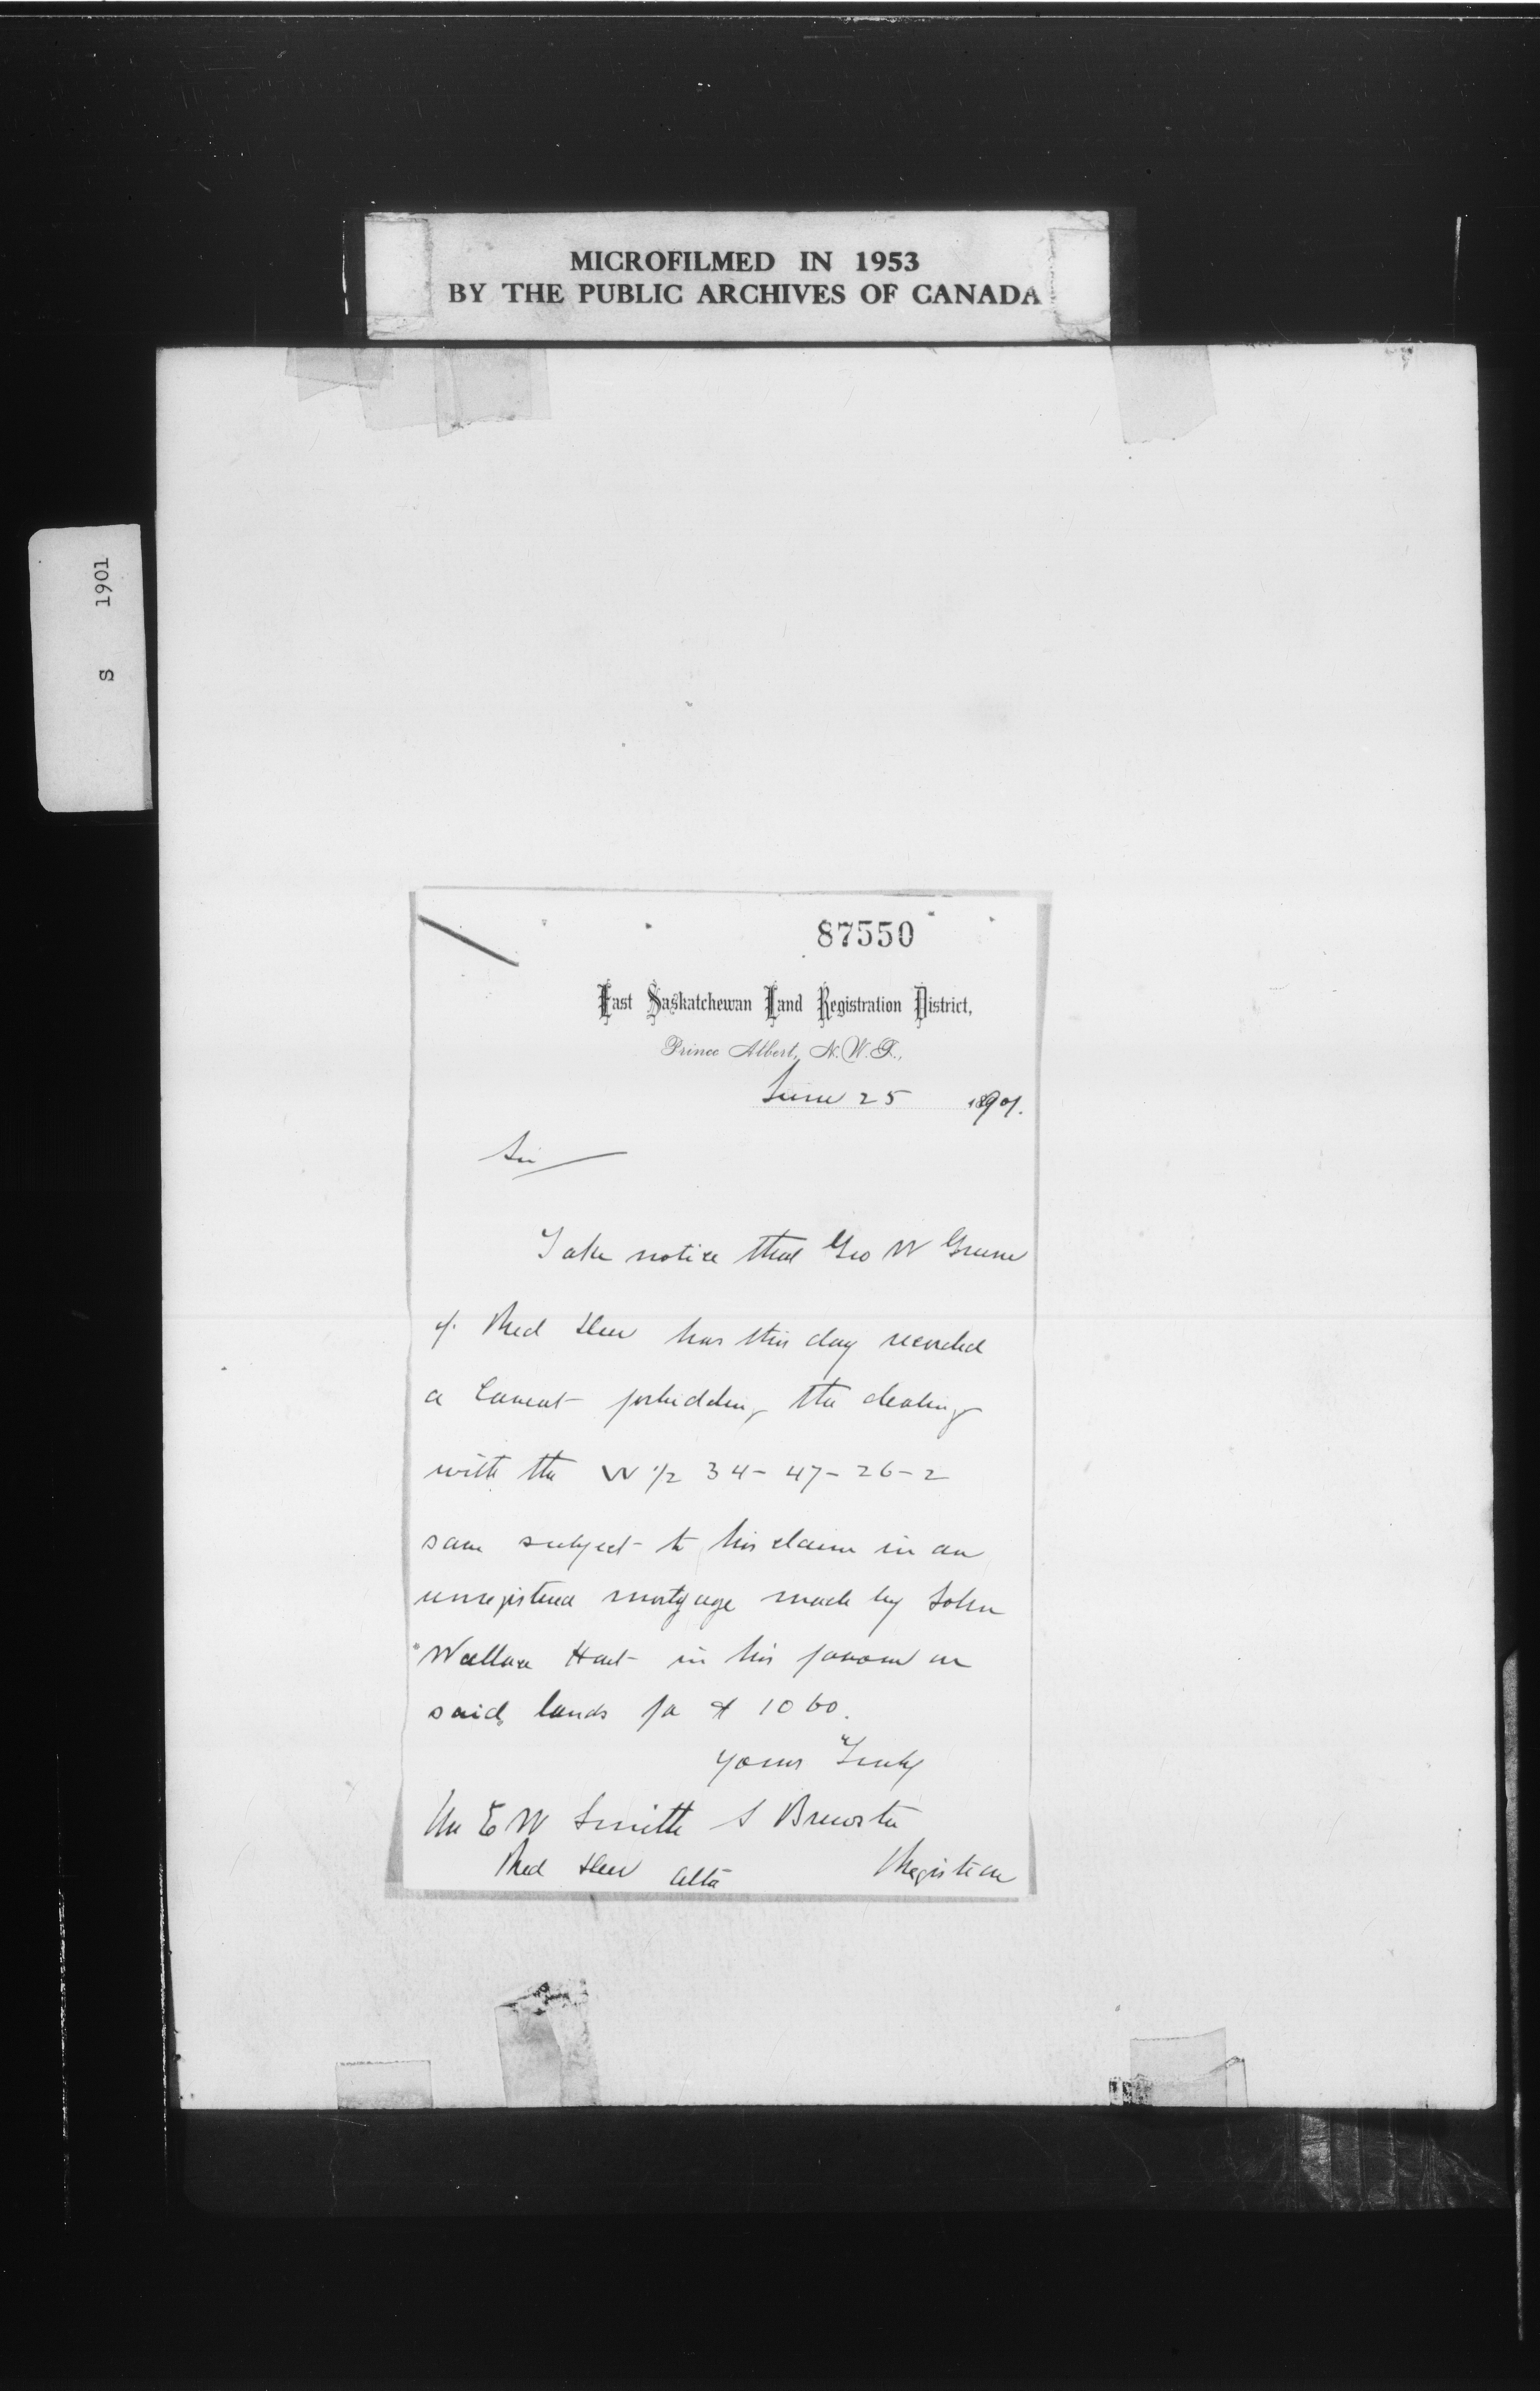 MICROFILMED IN 1953
BY THE PUBLIC ARCHIVES OF CANADA
S 1901
87550
East Saskatchewan Land Registration District,
Prince Albert, N.W.T.,
June 25 1901.
Sir
Take notice that Geo W Greene
of Red Deer has this day recorded
a Caveat forbidding the dealing
with the W 1/2 34-47-26-2
same subject to his claim in an
unregistered mortgage made by John
Wallace Hart in his favour on
said lands for $ 1060.
Yours Truly
Mr E W Smith S Brewster
Red Deer Alta Registrar